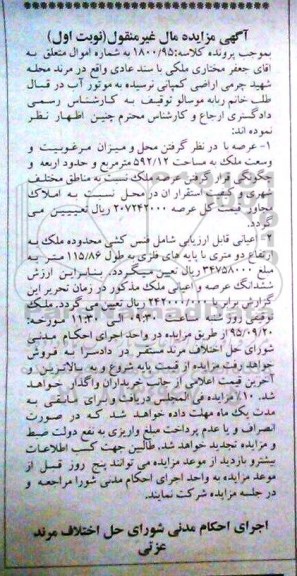 آگهی مزایده مال غیرمنقول(نوبت اول)
بموجب پرونده کلاسه:۱۸۰۰/۹۵ به شماره اموال متعلق به
آقای جعفر مختاری ملکی با سند عادی واقع در مرند محله
شهید چرمی اراضی کمپانی نرسیده به موتور آب در قبال
طلب خانم ربابه موسالو توقیف به کارشناس رسمی
دادگستری ارجاع و کارشناس محترم چنین اظهار نظر
نموده اند:
۱- عرصه با در نظر گرفتن محل و میزان مرغوبیت و
وسعت ملک به مساحت ۵۹۲/۱۲ مترمربع و حدود اربعه و
چگونگی قرار گرفتن عرصه ملک نسبت به مناطق مختلف
شهری و کیفیت استقرار آن در محل نسبت به املاک
مجاور قیمت کل عرصه ۲۰۷۲۴۲۰۰۰ ریال تعیین می
گردد.
۲- اعیانی قابل ارزیابی شامل فنس کشی محدوده ملک به
ارتفاع دو متری با پایه های فلزی به طول ۱۱۵/۸۶ متر به
مبلغ ۳۴۷۵۸۰۰۰ ریال تعیین میگردد. بنابراین ارزش
ششدانگ عرصه و اعیانی ملک مذکور در زمان تحریر این
گزارش برابر با ۲۴۲۰۰۰/۰۰۰ ریال تعیین می گردد. ملک
توقیفی روز شنبه از ساعت ۰۹:۳۰ الی ۱۱:۳۰ مورخه:
۹۵/۰۹/۲۰ از طریق مزایده در واحد اجرای احکام مدنی
شورای حل اختلاف مرند مستقر در دادسرا به فروش
خواهد رفت مزایده از قیمت پایه شروع و به بالاترین و
آخرین قیمت اعلامی از جانب خریداران واگذار خواهد
شد. ۱۰٪ مزایده فی المجلس دریافت و برای مابقی به
مدت یک ماه مهلت داده خواهد شد که در صورت
انصراف و یا عدم پرداخت مبلغ واریزی به نفع دولت ضبط
و مزایده تجدید خواهد شد. طالبین جهت کسب اطلاعات
بیشتر و بازدید از موعد مزایده می توانند پنج روز قبل از
موعد مزایده به واحد اجرای احکام مدنی شورا مراجعه و
در جلسه مزایده شرکت نمایند.
اجرای احکام مدنی شورای حل اختلاف مرند
عزتی